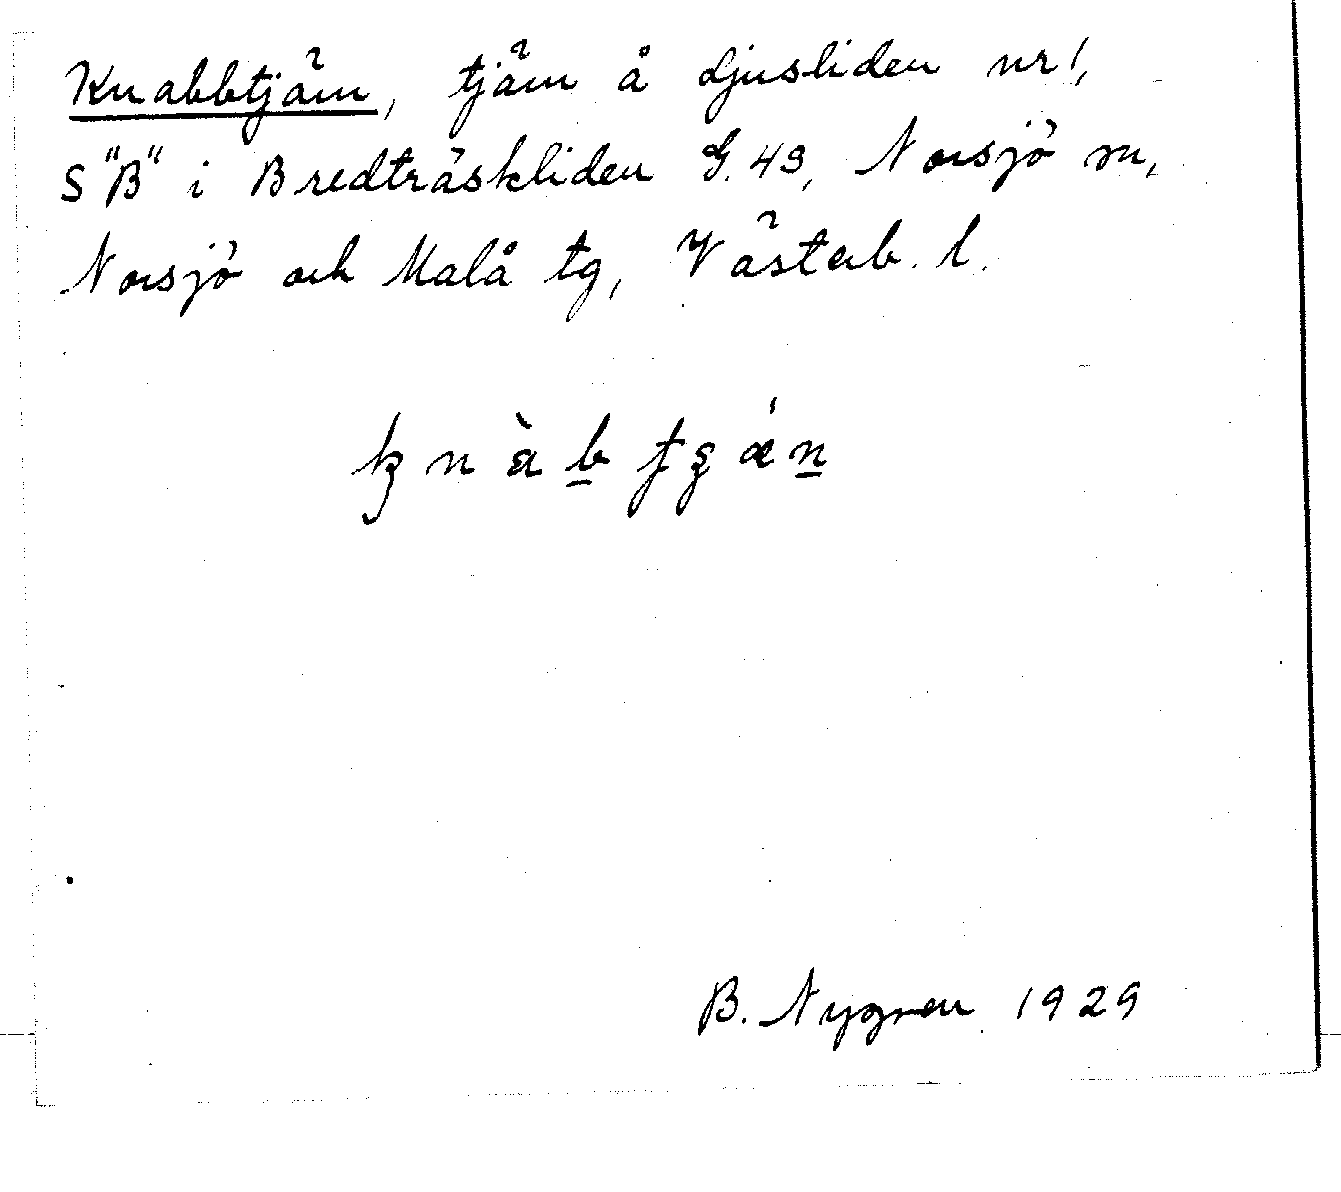 Knabbtjärn, tjärn å Ljusliden nr 1,
S "B" i Bredträskliden G. 43, Norsjö sn,
Norsjö och Malå tg, Västerb. l.
B. Nygren 1929